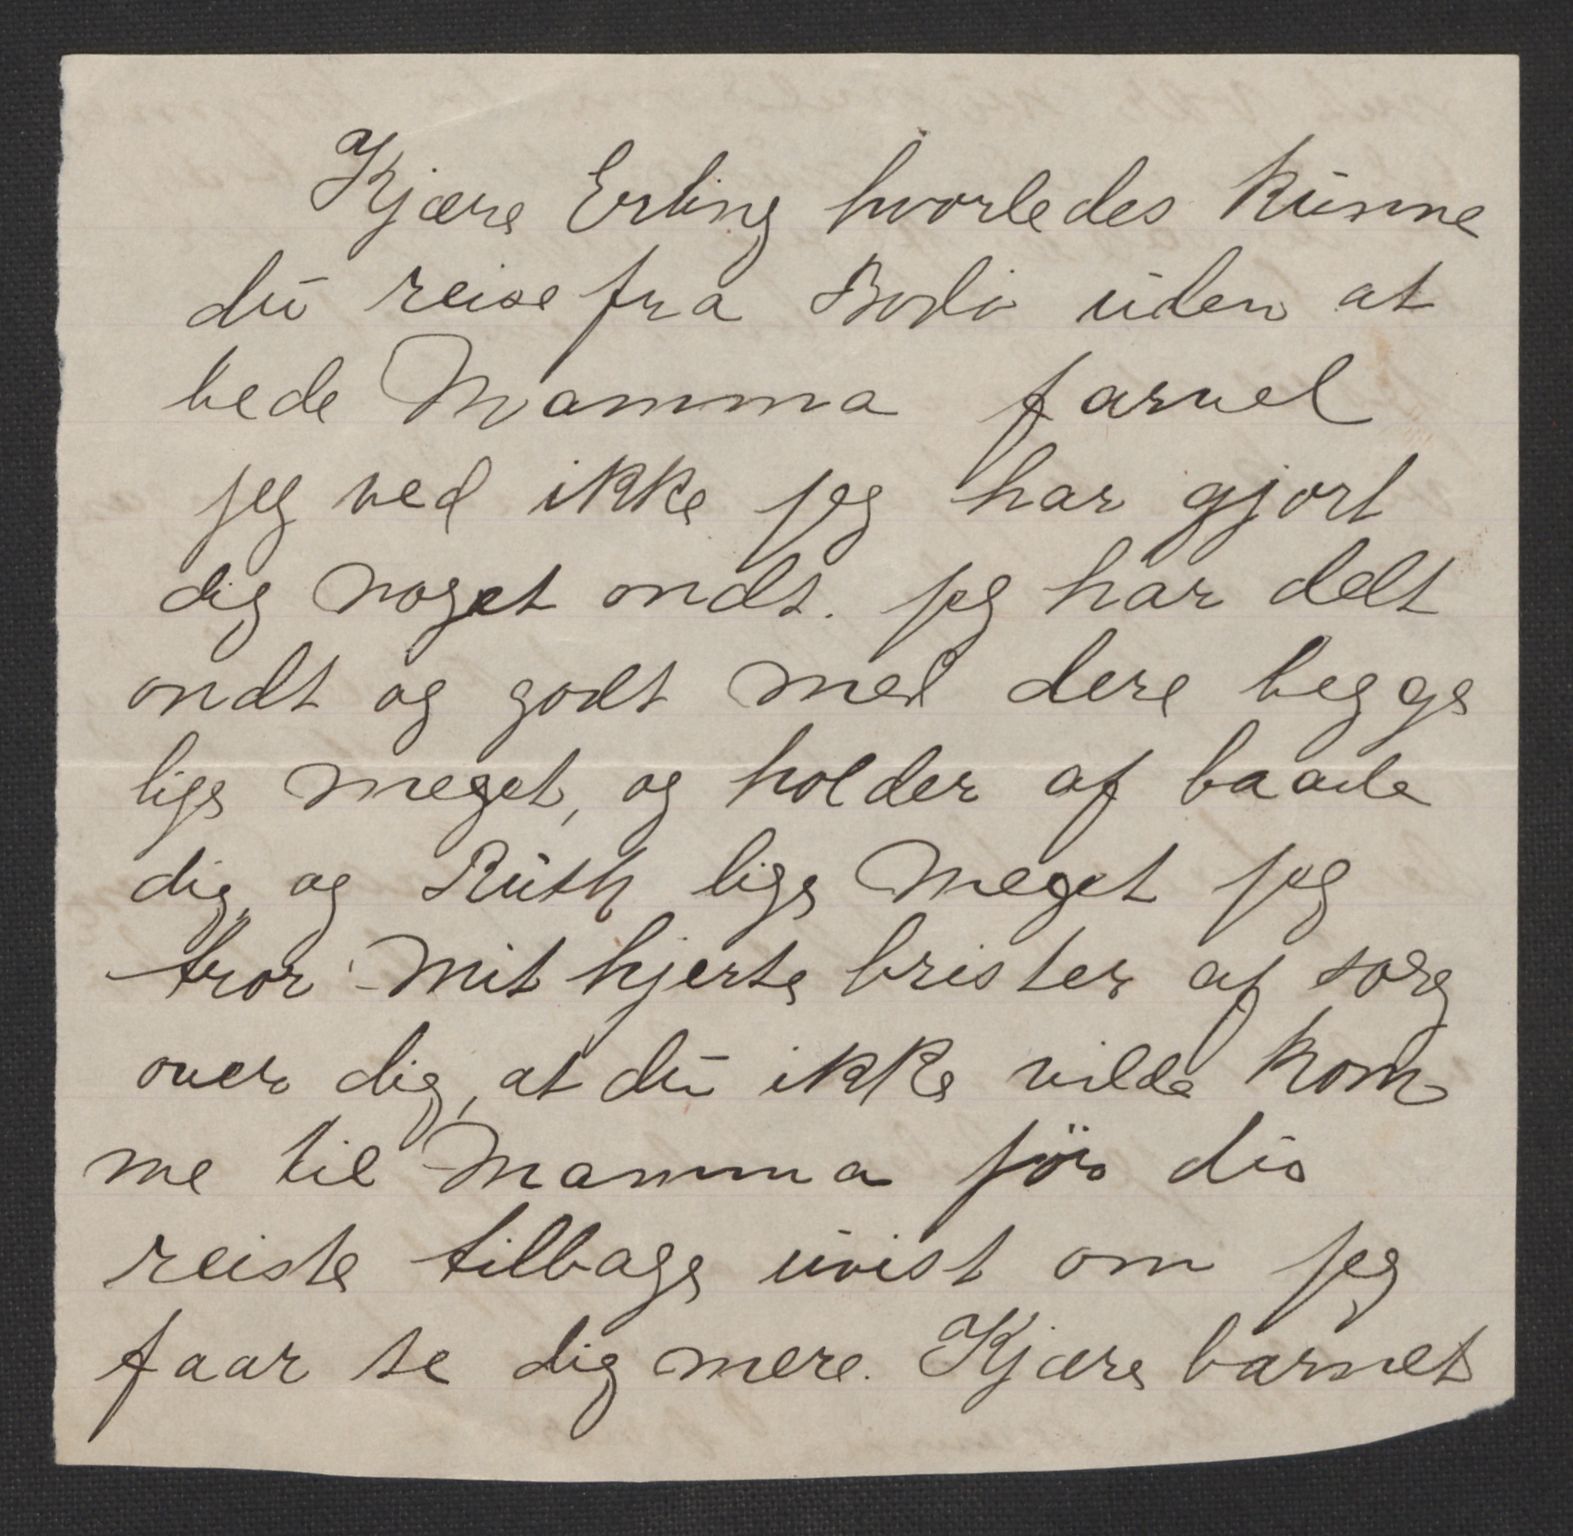 Kjære Erling hvorledes kunne
du reise fra Bodö uden at
bede Mamma farvel
jeg ved ikke jeg har gjort
dig noget ondt. jeg har delt
ondt og godt med dere begge
lige meget, og holder af baade
dig og Ruth lige meget jeg
tror mit hjerte brister af sorg
over dig, at du ikke vilde kom
me til Mamma för du
reiste tilbage uvist om jeg
faar se dig mere. Kjære barnet